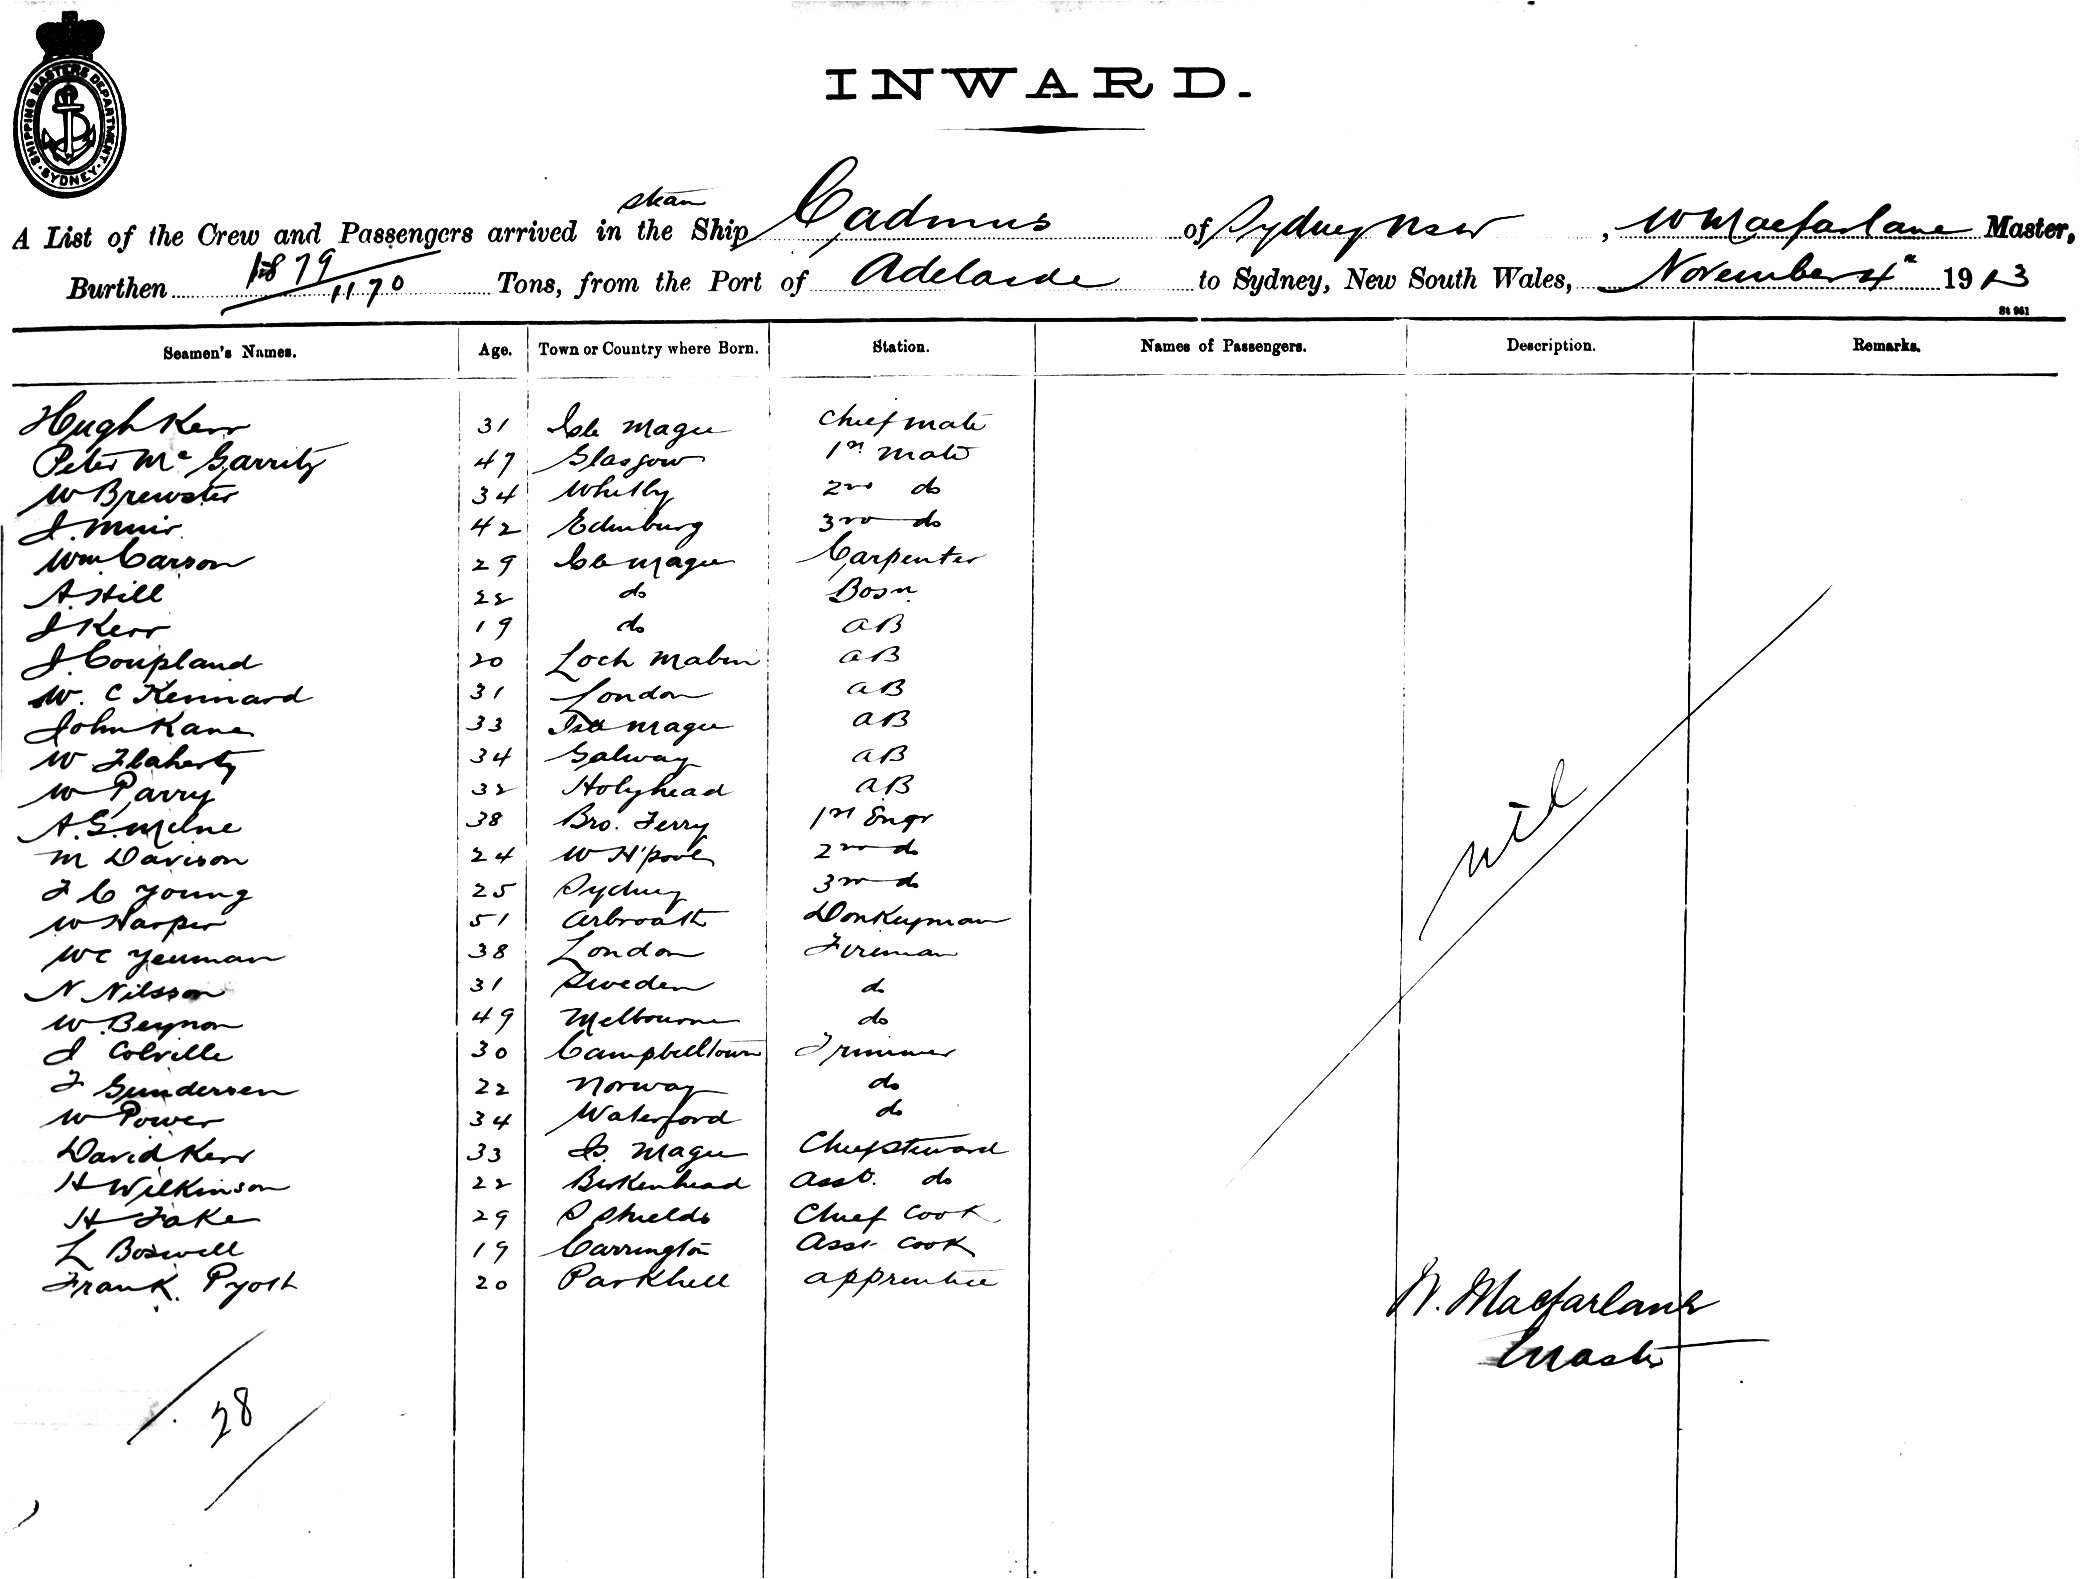 SHIPPING MASTERS DEPARTMENT · SYDNEY ·
INWARD.
steam
A List of the Crew and Passengers arrived in the Ship Cadmus of Sydney NSW, W Macfarlane Master,
Burthen 1879/1170 Tons, from the Port of Adelaide to Sydney, New South Wales, November 4th 1913
St 961
Seamen's Names. Age. Town or Country where Born. Station. Names of Passengers. Description. Remarks.
Hugh Kerr 31 Isle Magee Chief mate
Peter McGarrity 47 Glasgow 1st Mate
W Brewster 34 Whitby 2nd do
J. Muir 42 Edinburg 3rd do
Wm Carson 29 Isle Magee Carpenter
A. Hill 22 do Bosn
J Kerr 19 do AB
J. Coupland 20 Loch Maben AB
W. C Kennard 31 London AB
John Kane 33 Isle Magee AB
W Flaherty 34 Galway AB
W Parry 32 Holyhead AB
A. G. Milne 38 Bro. Ferry 1st Engr
M Davison 24 W H'pool 2nd do
F C Young 25 Sydney 3rd do
W Harper 51 Arbroath Donkeyman
W C Yeuman 38 London Fireman
N Nilsson 31 Sweden do
W. Beynon 49 Melbourne do
J Colville 30 Campbelltown Trimmer
F Gundersen 22 Norway do
W Power 34 Waterford do
David Kerr 33 Is. Magee Chief steward
H Wilkinson 22 Birkenhead Asst. do
H Fake 29 S Shields Chief Cook
L Boswell 19 Carrington Asst Cook
Frank Pyoth 20 Parkhill apprentice
nil
W. Macfarlane
Master
28